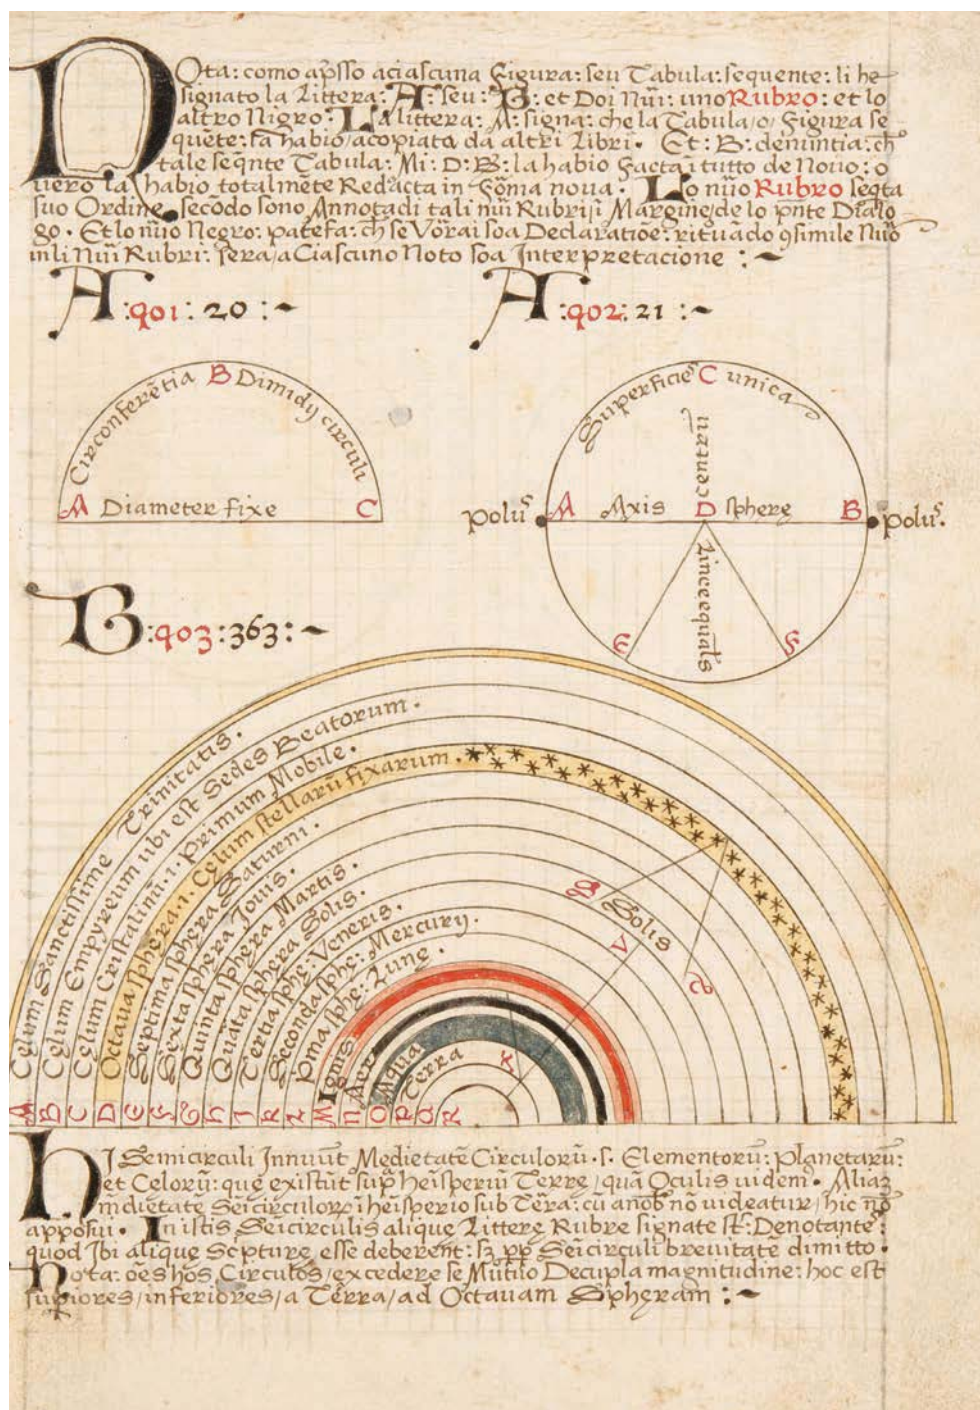 Nota: como ap̃sso aciascuna Figura: seu Tabula: sequente: li he
signato la Littera: A: seu: B: et Doi Nũi: uno Rubro: et lo
altro Nigro: La littera: A: signa: che la Tabula/o/ Figura se
quẽte: la habio/acopiata da altri Libri. Et: B: denuntia: ch̃
tale seq̃nte Tabula: Mi: D: B: la habio Facta ĩ tutto de Nouo: o
uero la habio totalmẽte Redacta in Fõma noua. Lo nũo Rubro seq̃ta
suo Ordine, secõdo sono Annotadi tali nũi Rubri ĩ Margine de lo p̃nte Dialo
go. Et lo nũo Negro: patefa: ch se Vorai soa Declaratiõe: rituado 9simile Nũo
inli Nũi Rubri: sera/a Ciascuno Noto soa Interpretacione :~
A:901:20:~
A:902:21:~
Circonferẽtia B Dimidij circuli
A Diameter fixe C
Superficieˢ C unica
centrũ
polũˢ A Axis D sphere B poluˢ.
E F
B:903:363:~
Celum Sanctissime Trinitatis.
Celum Empyreium ubi est Sedes Beatorum.
Celum Cristalinũ. i. Primum Mobile.
Octaua sphera. i. Celum stellarũ fixarum.
Septima sphera Saturni.
Sexta sphera Jouis.
Quinta sphera Martis.
Quãta sphera Solis.
Tertia sphe: Veneris.
Seconda sphe: Mercurij.
Pma sphe: Lune.
Ignis
Aer
Aqua
Terra
Solis
V
A B C D E F G h I K L M N O P Q R
HI Semicirculi Innuũt Medietatẽ Circulorũ. s. Elementorũ: Planetarũ:
et Celorũ: que existũt sup̃ hẽisperiũ Terre/quã Oculis uidem̃. Aliaz
m̃dietatẽ Sẽicirculorũ ĩ hẽisperio sub Tẽra: cũ a nob̃ nõ uideatur/hic nõ
apposui. In istis Sẽicirculis alique Littere Rubre signate st̃: Denotante:
quod Ibi alique Sc̃pture esse deberent: sz pp̃ Sẽicirculi breuitatẽ dimitto.
Nota: oẽs hos Circulos/excedere se Mũtilo Decupla magnitudine: hoc est
sup̃iores/inferiores/a Tẽrra/ad Octauam Spheram :~